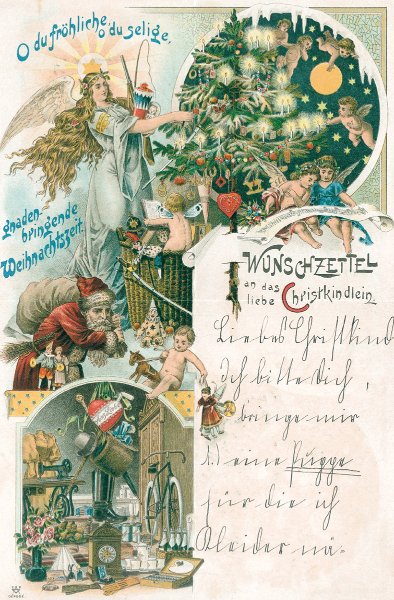 O du fröhliche, o du selige,
gnaden-
bringende
Weihnachtszeit.
WUNSCHZETTEL
an das
liebe Christkindlein.
Liebes Christkind
Ich bitte Dich,
bringe mir
1.) eine Puppe
für die ich
Kleider nä-